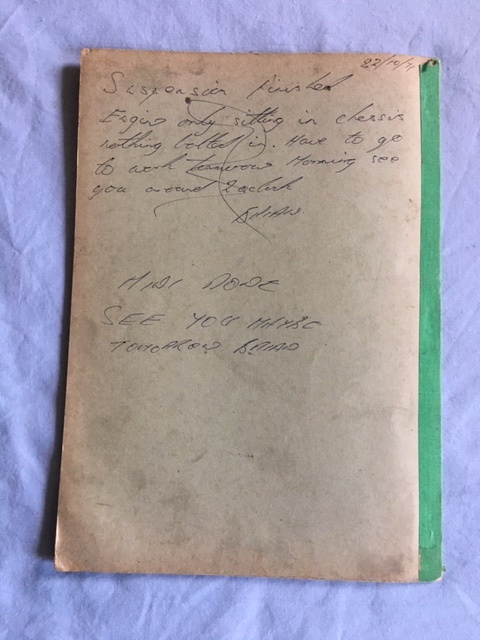 22/10/71
Suspension finished
Engine only sitting in chassis
nothing bolted in. Have to go
to work tomorrow Morning see
you around 2oclock
BRIAN
MINI DONE
SEE YOU MAYBE
TOMORROW BRIAN